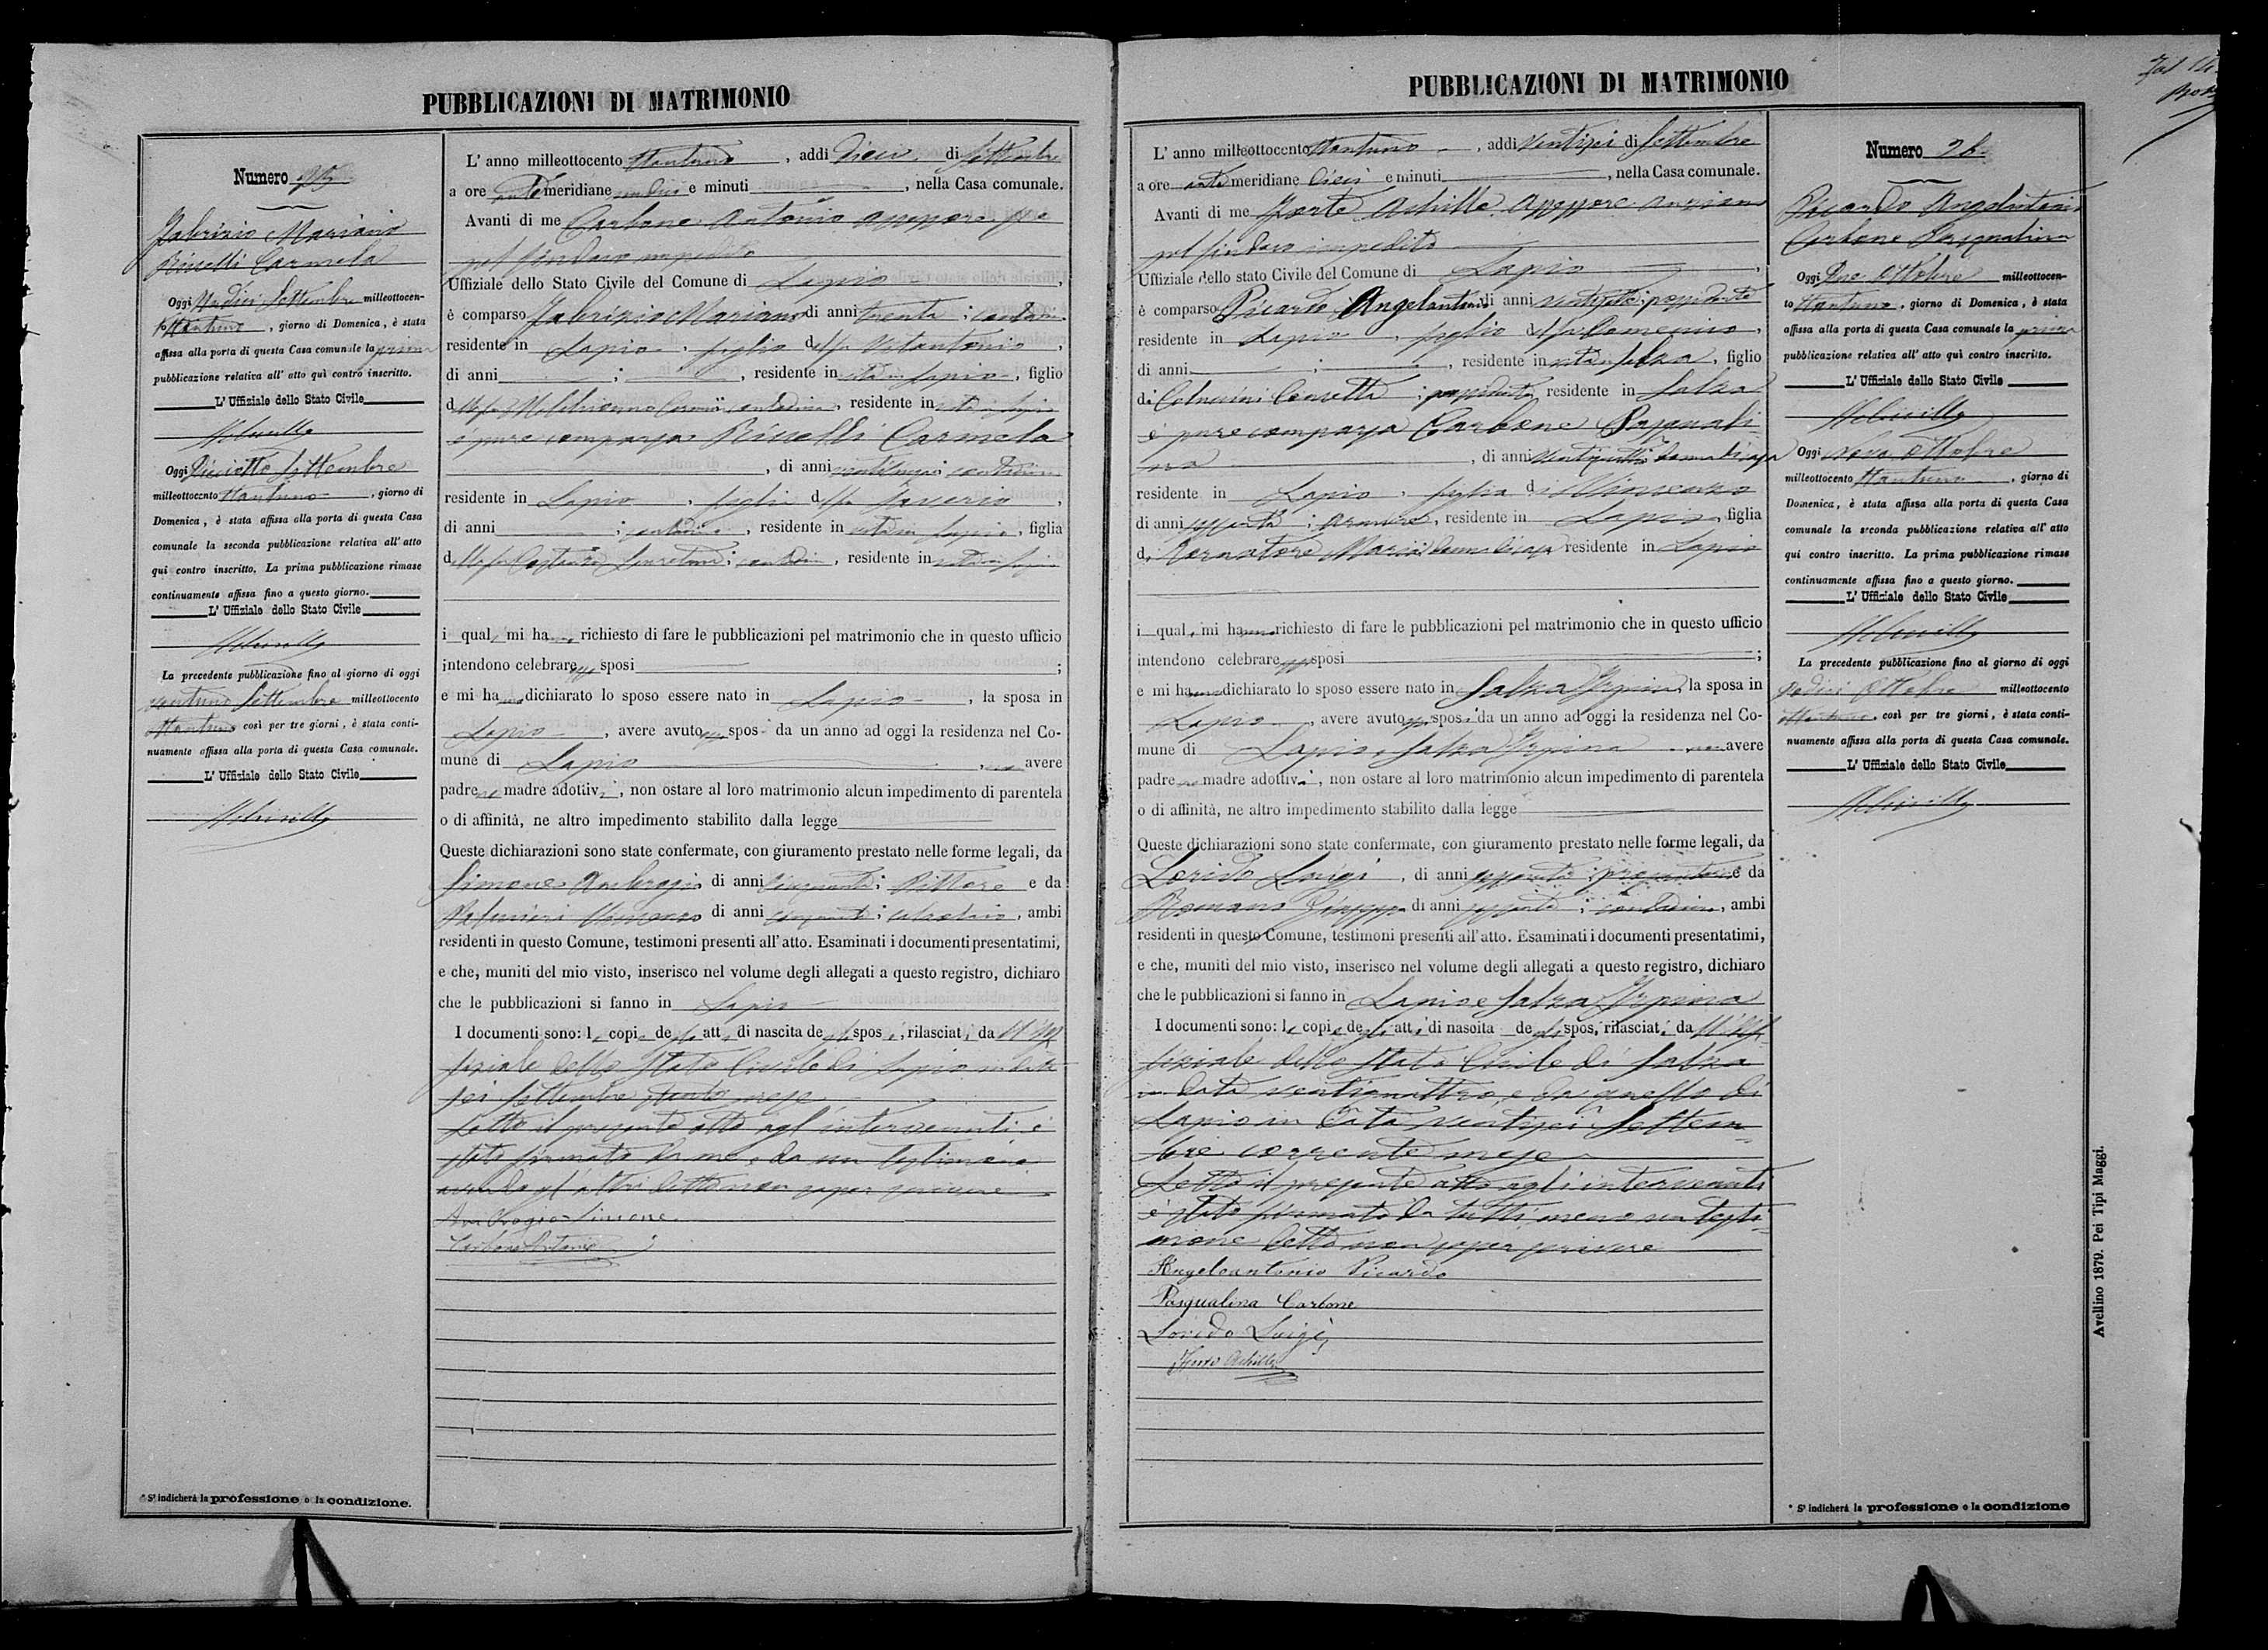 PUBBLICAZIONI DI MATRIMONIO
Numero 25
Fabrizio Mariano
Riccelli Carmela
Oggi Undici Settembre milleottocen-
to ottantuno, giorno di Domenica, è stata
affissa alla porta di questa Casa comunale la prima
pubblicazione relativa all' atto quì contro inscritto.
L' Uffiziale dello Stato Civile
Oggi Diciotto Settembre
milleottocento ottantuno, giorno di
Domenica, è stata affissa alla porta di questa Casa
comunale la seconda pubblicazione relativa all' atto
qui contro inscritto. La prima pubblicazione rimase
continuamente affissa fino a questo giorno.
L' Uffiziale dello Stato Civile
La precedente pubblicazione fino al giorno di oggi
ventuno Settembre milleottocento
ottantuno così per tre giorni, è stata conti-
nuamente affissa alla porta di questa Casa comunale.
L' Uffiziale dello Stato Civile
* S' indicherà la professione o la condizione.
L' anno milleottocento ottantuno, addì dieci di Settembre
a ore antimeridiane undici e minuti , nella Casa comunale.
Avanti di me Carbone Antonio assessore
pel sindaco impedito
Uffiziale dello Stato Civile del Comune di Lapio,
è comparso Fabrizio Mariano di anni trenta; contadino
residente in Lapio, figlio del fu Vitantonio,
di anni ; , residente in vita in Lapio, figlio
della fu contadina, residente in vita in Lapio
è pure comparsa Riccelli Carmela
, di anni ventisei; contadina
residente in Lapio, figlia del fu Saverio,
di anni ; contadino, residente in vita in Lapio, figlia
della fu Loretana; contadina, residente in vita in Lapio
i quali mi hanno richiesto di fare le pubblicazioni pel matrimonio che in questo ufficio
intendono celebrare essi sposi ;
e mi hanno dichiarato lo sposo essere nato in Lapio, la sposa in
Lapio, avere avuto essi sposi da un anno ad oggi la residenza nel Co-
mune di Lapio, non avere
padre nè madre adottivi, non ostare al loro matrimonio alcun impedimento di parentela
o di affinità, ne altro impedimento stabilito dalla legge
Queste dichiarazioni sono state confermate, con giuramento prestato nelle forme legali, da
Simone Ambrogio di anni cinquanta; Pittore e da
Vincenzo di anni cinquanta; calzolaio, ambi
residenti in questo Comune, testimoni presenti all' atto. Esaminati i documenti presentatimi,
e che, muniti del mio visto, inserisco nel volume degli allegati a questo registro, dichiaro
che le pubblicazioni si fanno in Lapio
I documenti sono: le copie degli atti di nascita degli sposi, rilasciati da ll'uf
fiziale dello Stato Civile di Lapio in data
sei Settembre stante mese
Letto il presente atto agl'intervenuti è
stato firmato da me e da un testimone
avendo gl'altri detto non saper scrivere
Ambrogio Simone
Carbone Antonio
PUBBLICAZIONI DI MATRIMONIO
L' anno milleottocento ottantuno, addì ventisei di Settembre
a ore antimeridiane dieci e minuti , nella Casa comunale.
Avanti di me Forte Achille assessore anziano
pel sindaco impedito
Uffiziale dello stato Civile del Comune di Lapio,
è comparso Picardo Angelantonio di anni ventisette; possidente
residente in Lapio, figlio del fu Domenico,
di anni ; , residente in vita in Salza, figlio
di Concetta; possidente residente in Salza
è pure comparsa Carbone Pasquali-
na , di anni donna di casa
residente in Lapio, figlia di Vincenzo
di anni sessanta; , residente in Lapio, figlia
di Maria donna di casa residente in Lapio
i quali mi hanno richiesto di fare le pubblicazioni pel matrimonio che in questo ufficio
intendono celebrare essi sposi ;
e mi hanno dichiarato lo sposo essere nato in Salza Irpina, la sposa in
Lapio, avere avuto essi sposi da un anno ad oggi la residenza nel Co-
mune di Lapio e Salza Irpina, non avere
padre nè madre adottivi, non ostare al loro matrimonio alcun impedimento di parentela
o di affinità, ne altro impedimento stabilito dalla legge
Queste dichiarazioni sono state confermate, con giuramento prestato nelle forme legali, da
Lorido Luigi, di anni sessanta; e da
Romano Giuseppe di anni sessanta; contadino, ambi
residenti in questo Comune, testimoni presenti all' atto. Esaminati i documenti presentatimi,
e che, muniti del mio visto, inserisco nel volume degli allegati a questo registro, dichiaro
che le pubblicazioni si fanno in Lapio e Salza Irpina
I documenti sono: le copie degli atti di nascita degli sposi, rilasciati da ll'uf
fiziale dello Stato Civile di Salza
in data ventiquattro, e da quello di
Lapio in data ventisei Settem-
bre corrente mese
Letto il presente atto agli intervenuti
è stato firmato da tutti meno un testi-
mone detto non saper scrivere
Angeloantonio Picardo
Pasqualina Carbone
Lorido Luigi
Forte Achille
Numero 26
Picardo Angelantonio
Carbone Pasqualina
Oggi Due Ottobre milleottocen-
to ottantuno, giorno di Domenica, è stata
affissa alla porta di questa Casa comunale la prima
pubblicazione relativa all' atto quì contro inscritto.
L' Uffiziale dello Stato Civile
Oggi Nove Ottobre
milleottocento ottantuno, giorno di
Domenica, è stata affissa alla porta di questa Casa
comunale la seconda pubblicazione relativa all' atto
qui contro inscritto. La prima pubblicazione rimase
continuamente affissa fino a questo giorno.
L' Uffiziale dello Stato Civile
La precedente pubblicazione fino al giorno di oggi
Dodici Ottobre milleottocento
ottantuno, così per tre giorni, è stata conti-
nuamente affissa alla porta di questa Casa comunale.
L' Uffiziale dello Stato Civile
* S' indicherà la professione o la condizione
Avellino 1879. Pei Tipi Maggi.